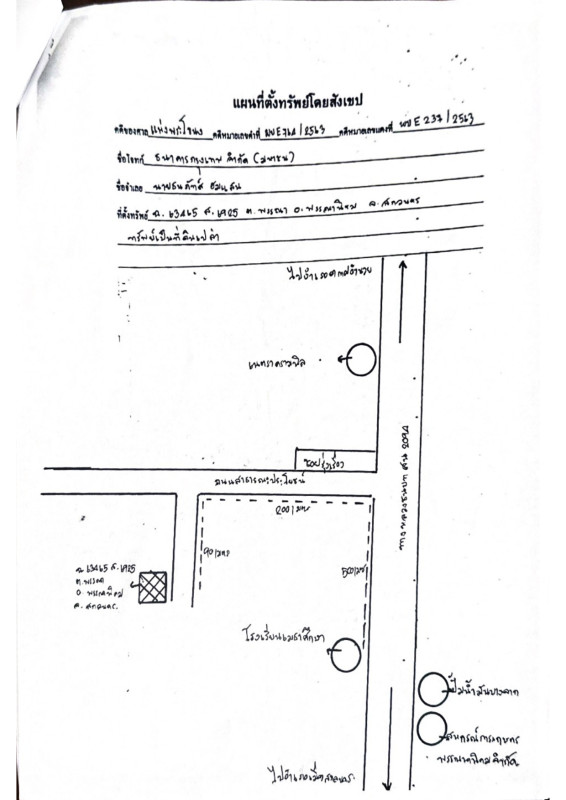 แผนที่ตั้งทรัพย์โดยสังเขป
คดีของศาล แพ่งพระโขนง คดีหมายเลขดำที่ ผบE764/2563 คดีหมายเลขแดงที่ ผบE237/2563
ชื่อโจทก์ ธนาคารกรุงเทพ จำกัด (มหาชน)
ชื่อจำเลย นายธนภัทร์
ที่ตั้งทรัพย์ ฉ. 63465 ต. พรรณา อ. พรรณานิคม จ. สกลนคร
ทรัพย์เป็นที่ดินเปล่า
ไปอำเภอ
ถนนสาธารณะประโยชน์
200 เมตร
90 เมตร
500 เมตร
ทางหลวงชนบท สน 2094
ฉ. 63465
ต. พรรณา
อ. พรรณานิคม
จ. สกลนคร
โรงเรียน
ปั๊มน้ำมันบางจาก
สหกรณ์การเกษตร
พรรณานิคม จำกัด
ไปอำเภอเมืองสกลนคร